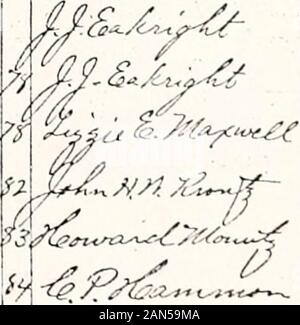 J. J. Eakright
78 J. J. Eakright
78 Lizzie E. Maxwell
82 John H. N. Krontz
83 Howard Mountz
84 C. P. Hammon
alamy
2AN59MA